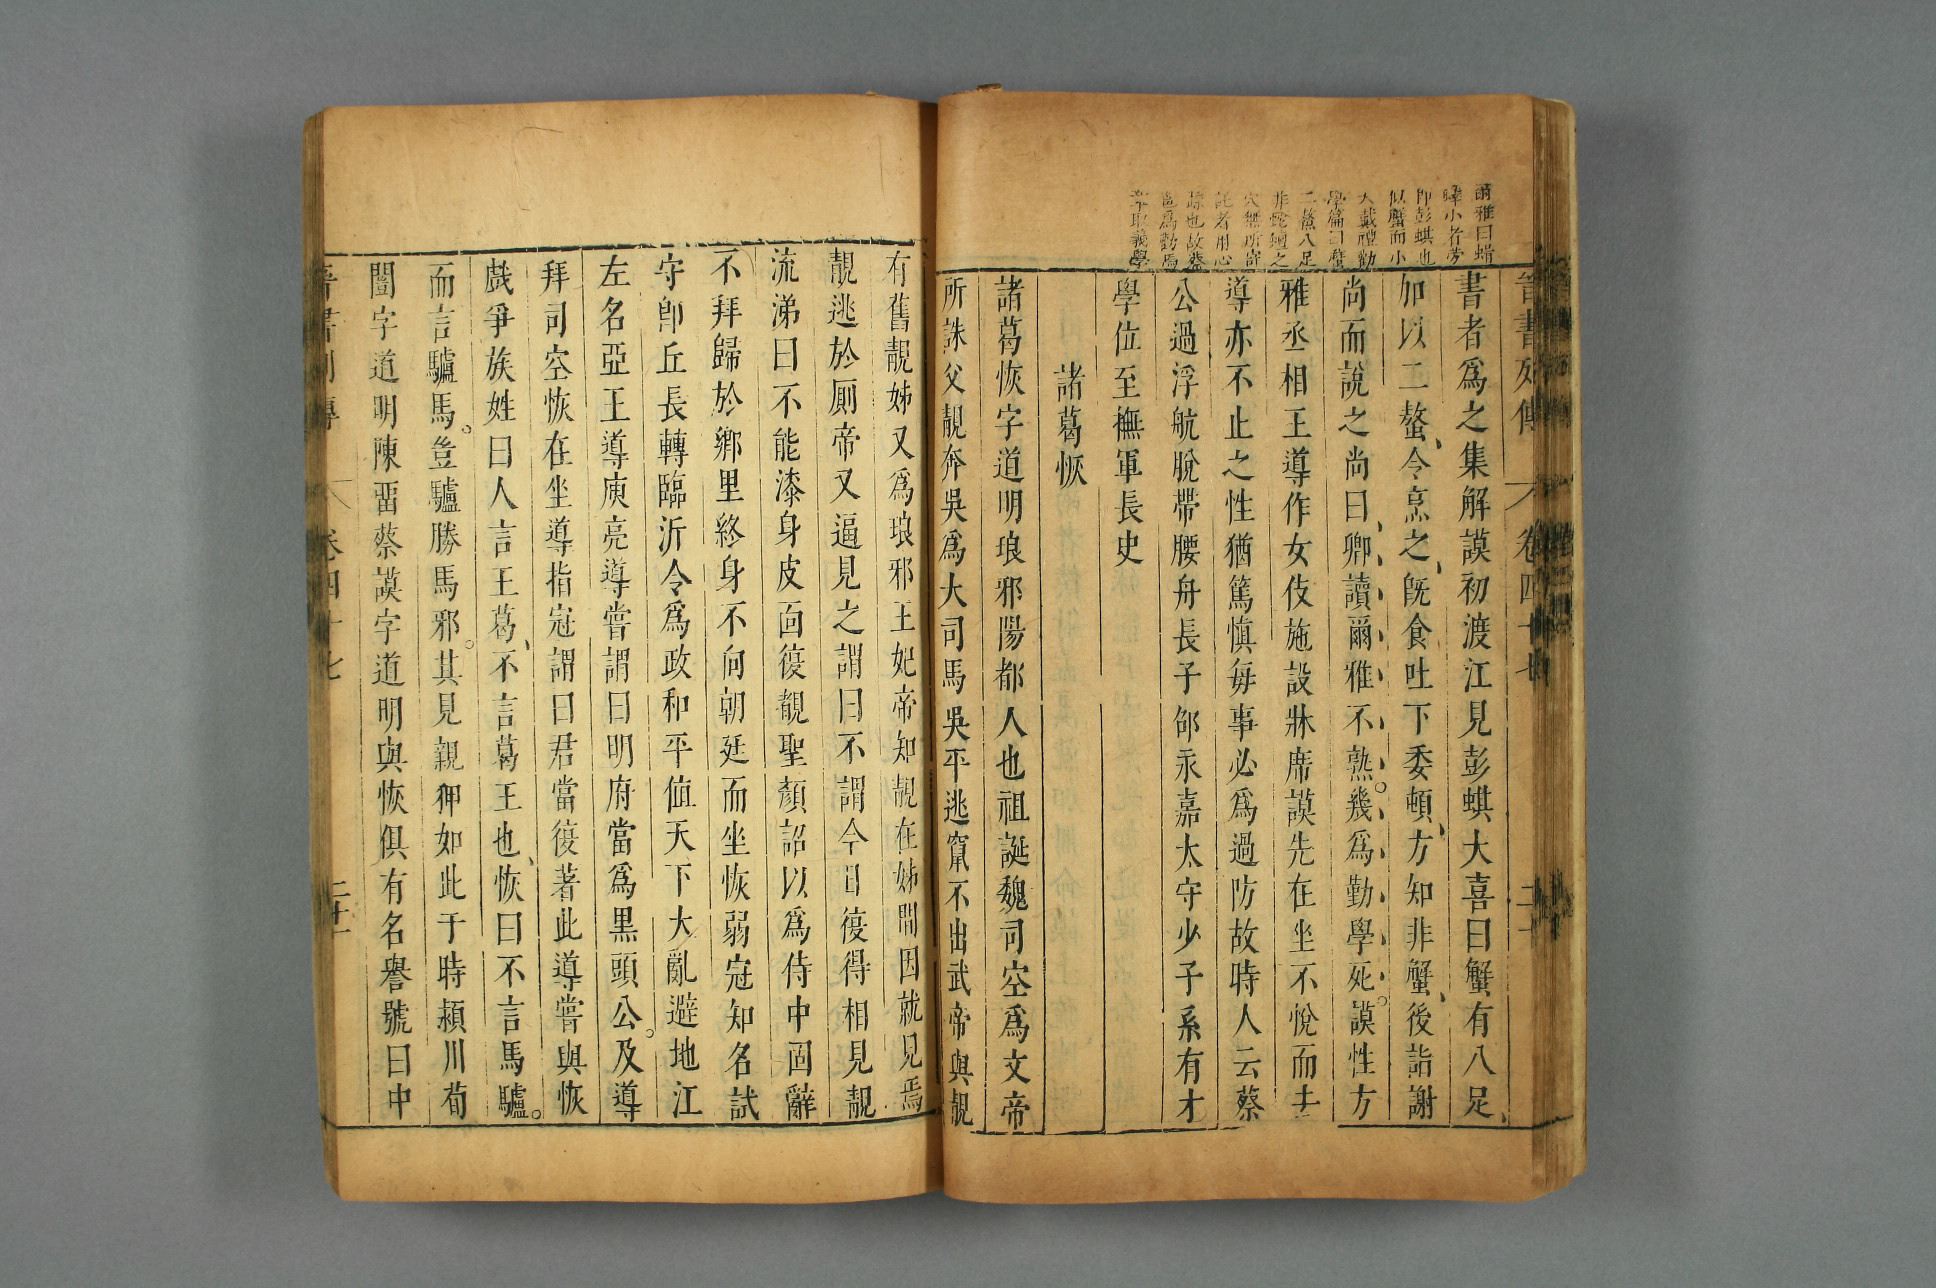 爾雅曰蜡
蠌小者蟧
即彭蜞也
似蟹而小
大戴禮勸
學篇曰蟹
二螯八足
非蛇蟺之
穴無所寄
託者用心
躁也故蔡
邕爲勸學
章取義焉
晉書列傳 卷四十七 二十
書者爲之集解謨初渡江見彭蜞大喜曰蟹有八足
加以二螯令烹之既食吐下委頓方知非蟹後詣謝
尚而說之尚曰卿讀爾雅不熟幾爲勤學死謨性方
雅丞相王導作女伎施設牀席謨先在坐不悅而去
導亦不止之性猶篤慎每事必爲過防故時人云蔡
公過浮航脫帶腰舟長子邵永嘉太守少子系有才
學位至撫軍長史
諸葛恢
諸葛恢字道明琅邪陽都人也祖誕魏司空爲文帝
所誅父靚奔吳爲大司馬吳平逃竄不出武帝與靚
有舊靚姊又爲琅邪王妃帝知靚在姊間因就見焉
靚逃於廁帝又逼見之謂曰不謂今日復得相見靚
流涕曰不能漆身皮面復覩聖顏詔以爲侍中固辭
不拜歸於鄉里終身不向朝廷而坐恢弱冠知名試
守卽丘長轉臨沂令爲政和平值天下大亂避地江
左名亞王導庾亮導嘗謂曰明府當爲黑頭公及導
拜司空恢在坐導指冠謂曰君當復著此導嘗與恢
戲爭族姓曰人言王葛不言葛王也恢曰不言馬驢
而言驢馬豈驢勝馬邪其見親狎如此于時潁川荀
闓字道明陳留蔡謨字道明與恢俱有名譽號曰中
晉書列傳 卷四十七 二十一